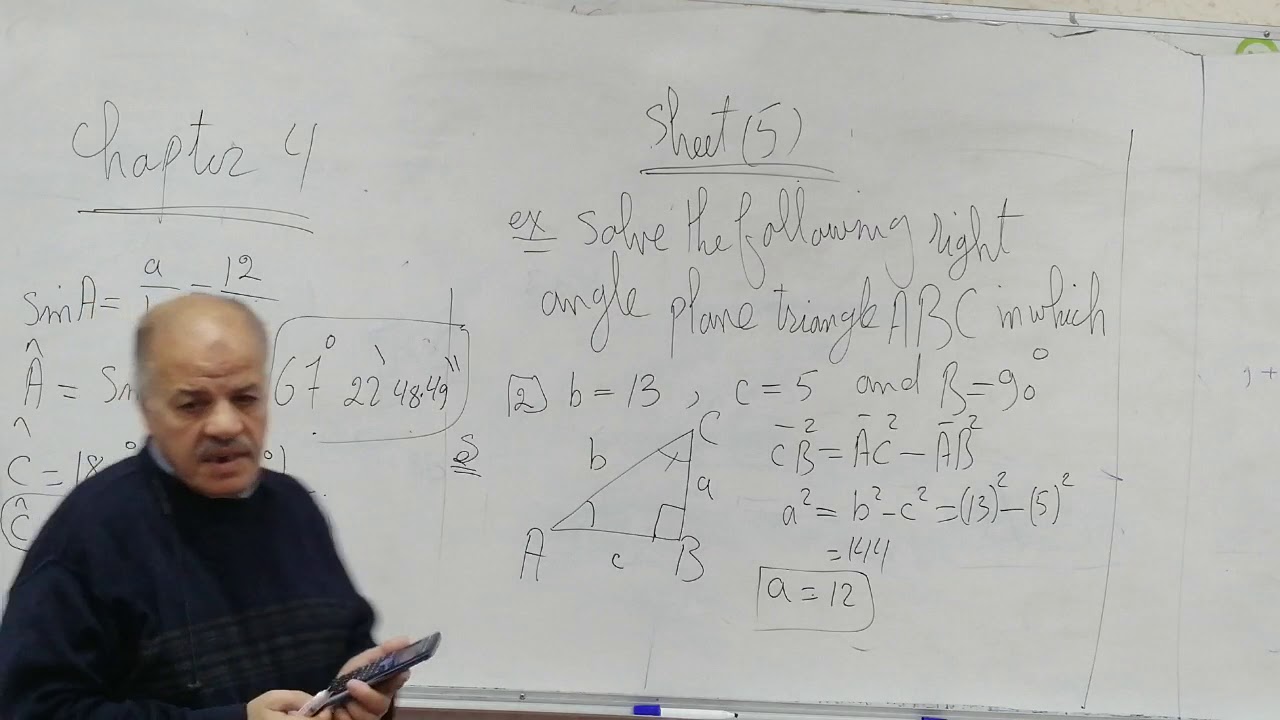 Chapter 4
sinA = a/ = 12/
Â = Sin 67° 22' 48.49"
Ĉ = 18
Ĉ
Sheet (5)
ex Solve the following right
angle plane triangle ABC in which
2 b = 13 , c = 5 and B = 90°
S
A
B
C
a
b
c
C̄B̄² = ĀC̄² - ĀB̄²
a² = b² - c² = (13)² - (5)²
= 144
a = 12